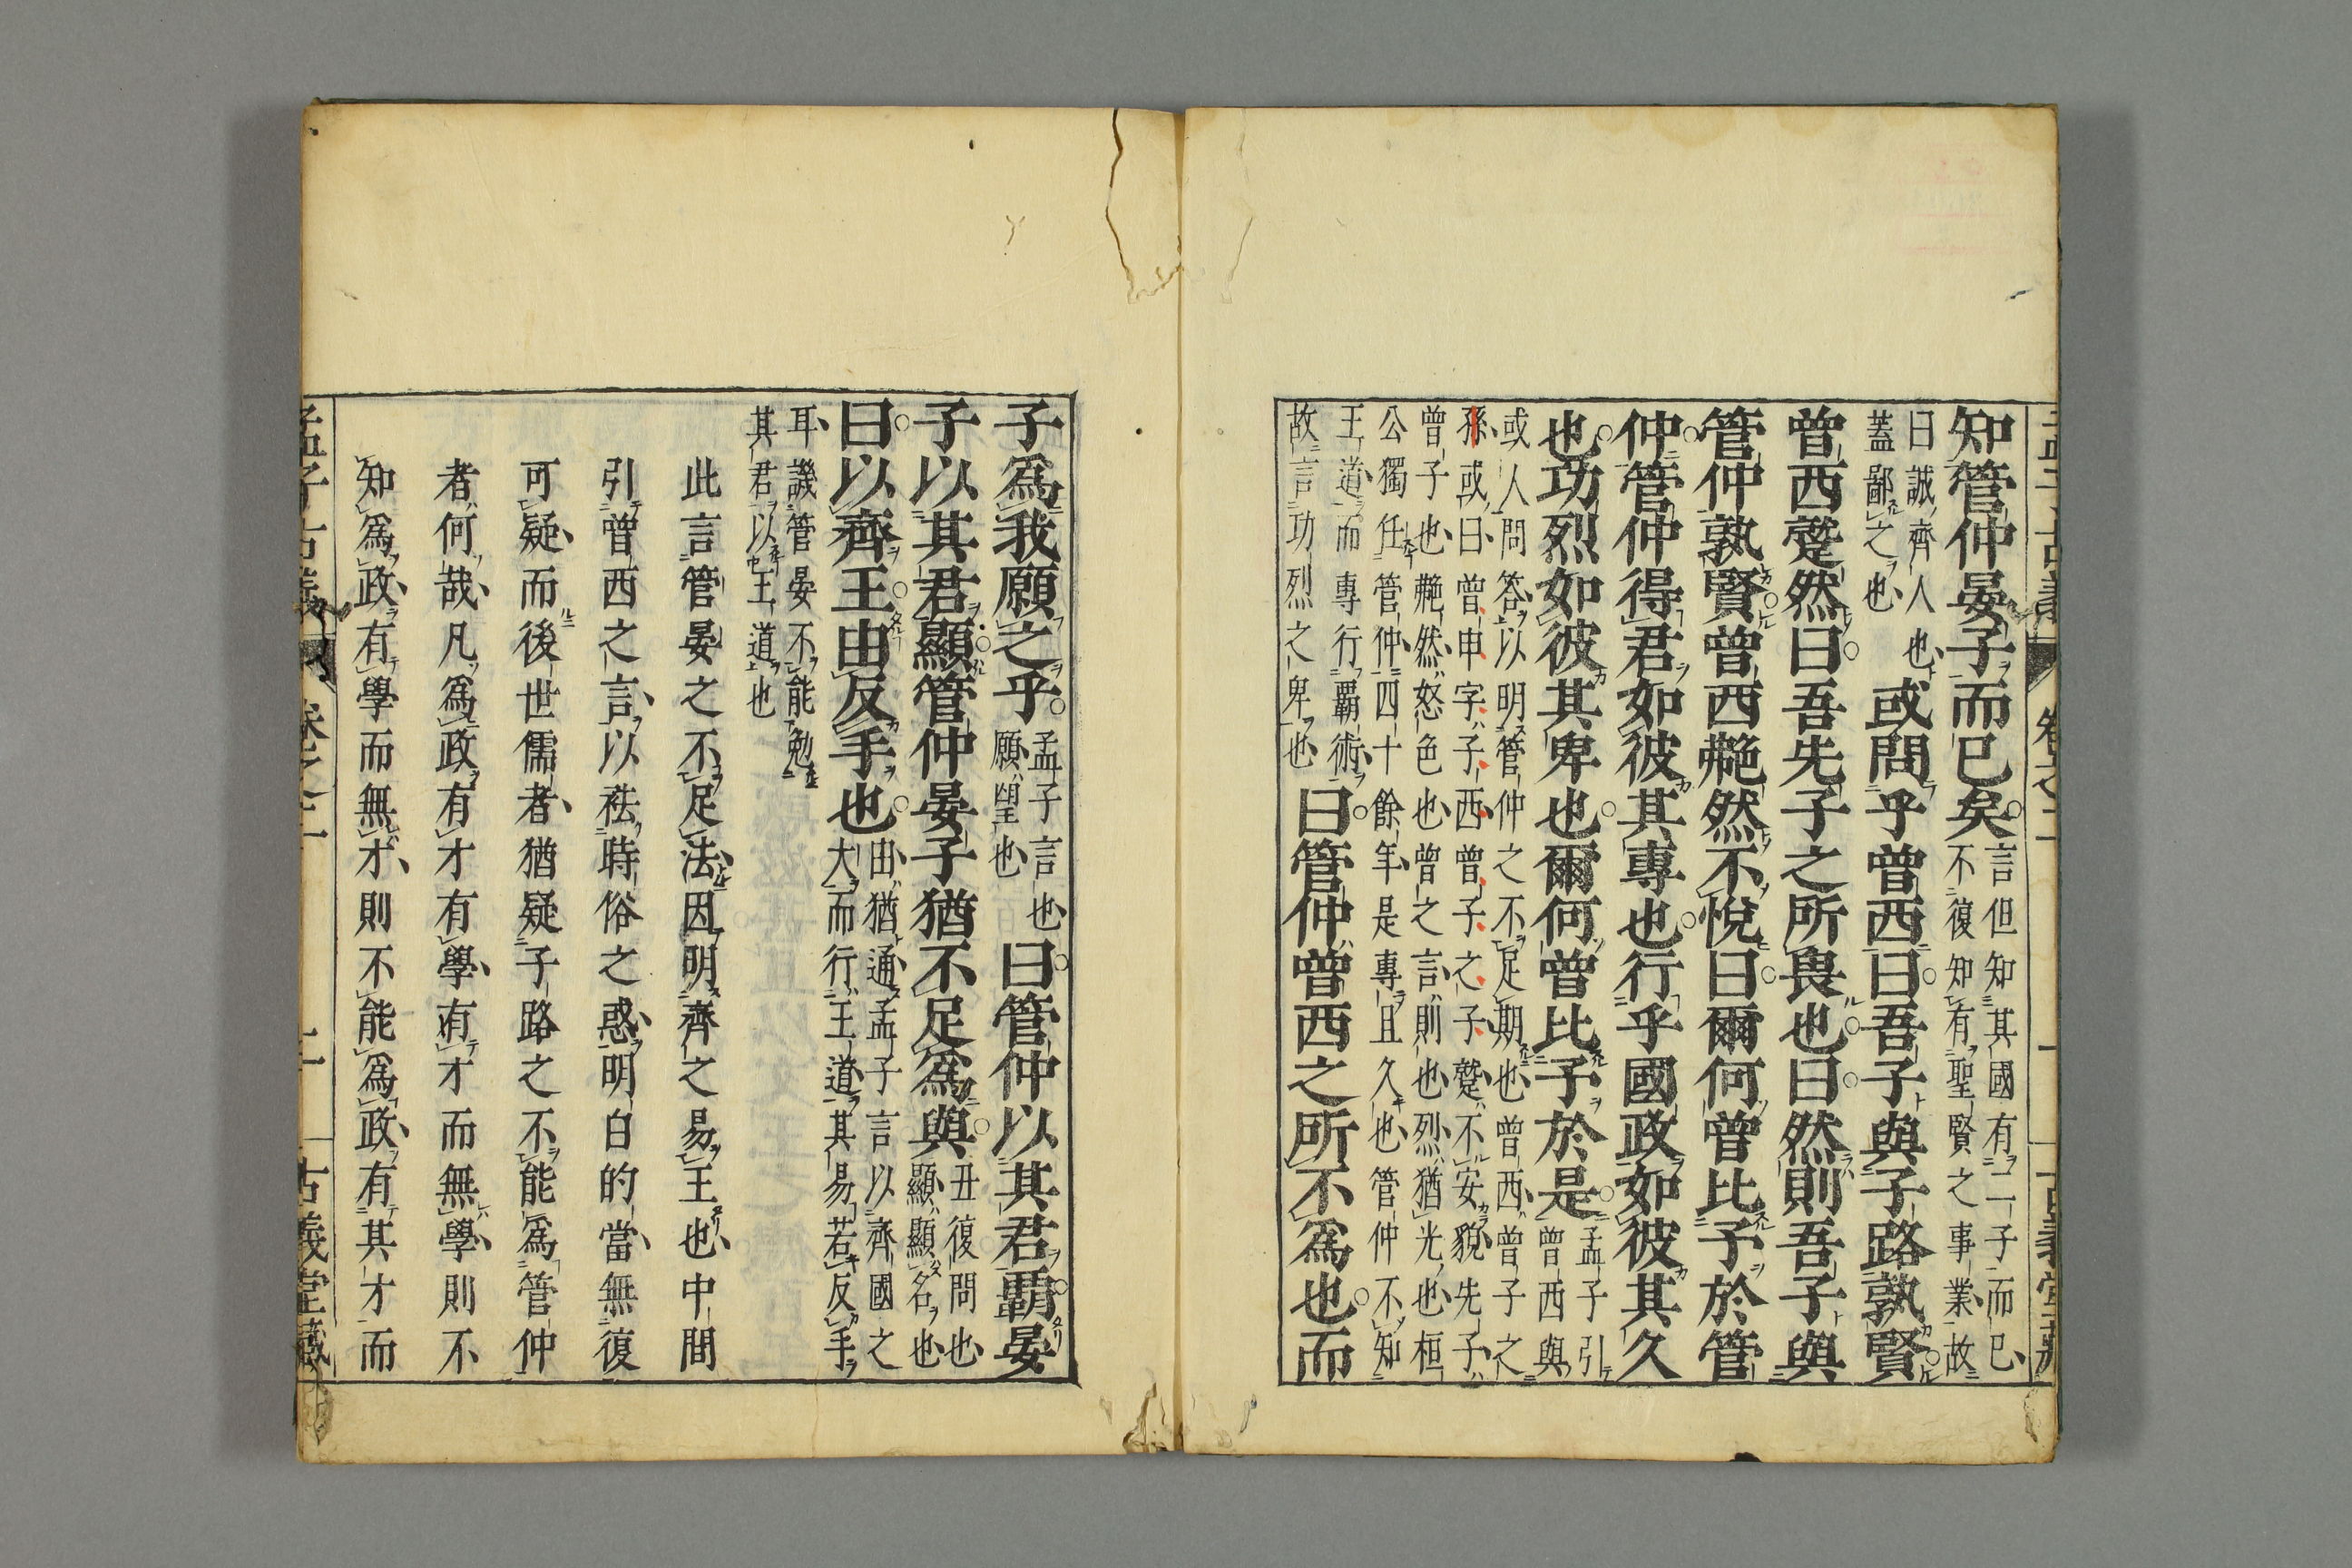 知管仲晏子而已矣。言但知其國有二子而已、
不復知有聖賢之事業、故
曰誠齊人也、
蓋鄙之也
或問乎曾西曰。吾子與子路孰賢。
曾西蹵然曰。吾先子之所畏也。曰。然則吾子與
管仲孰賢。曾西艴然不悅曰。爾何曾比予於管
仲。管仲得君如彼其專也。行乎國政如彼其久
也。功烈如彼其卑也。爾何曾比予於是。孟子引
曾西與
或人問答、以明管仲之不足期也、曾西、曾子之
孫、或曰、曾申字、子西、曾子之子、蹵、不安貌、先子、
曾子也、艴然、怒色也、曾之言、則也、烈、猶光也、桓
公獨任管仲、四十餘年、是專且久也、管仲不知
王道、而專行霸術、
故言功烈之卑也
曰。管仲曾西之所不爲也。而
子爲我願之乎。孟子言也、
願、望也
曰。管仲以其君霸。晏
子以其君顯。管仲晏子猶不足爲與。丑復問也、
顯、顯名也
曰。以齊王。由反手也。由、猶通、孟子言以齊國之
大、而行王道、其易若反手
耳、譏管晏不能勉
其君以王道也
此言管晏之不足法、因明齊之易王也、中間
引曾西之言、以祛時俗之惑、明白的當、無復
可疑、而後世儒者、猶疑子路之不能爲管仲
者、何哉、凡爲政有才有學、有才而無學、則不
知爲政、有學而無才、則不能爲政、有其才而
孟子古義 卷之二 二 古義堂藏